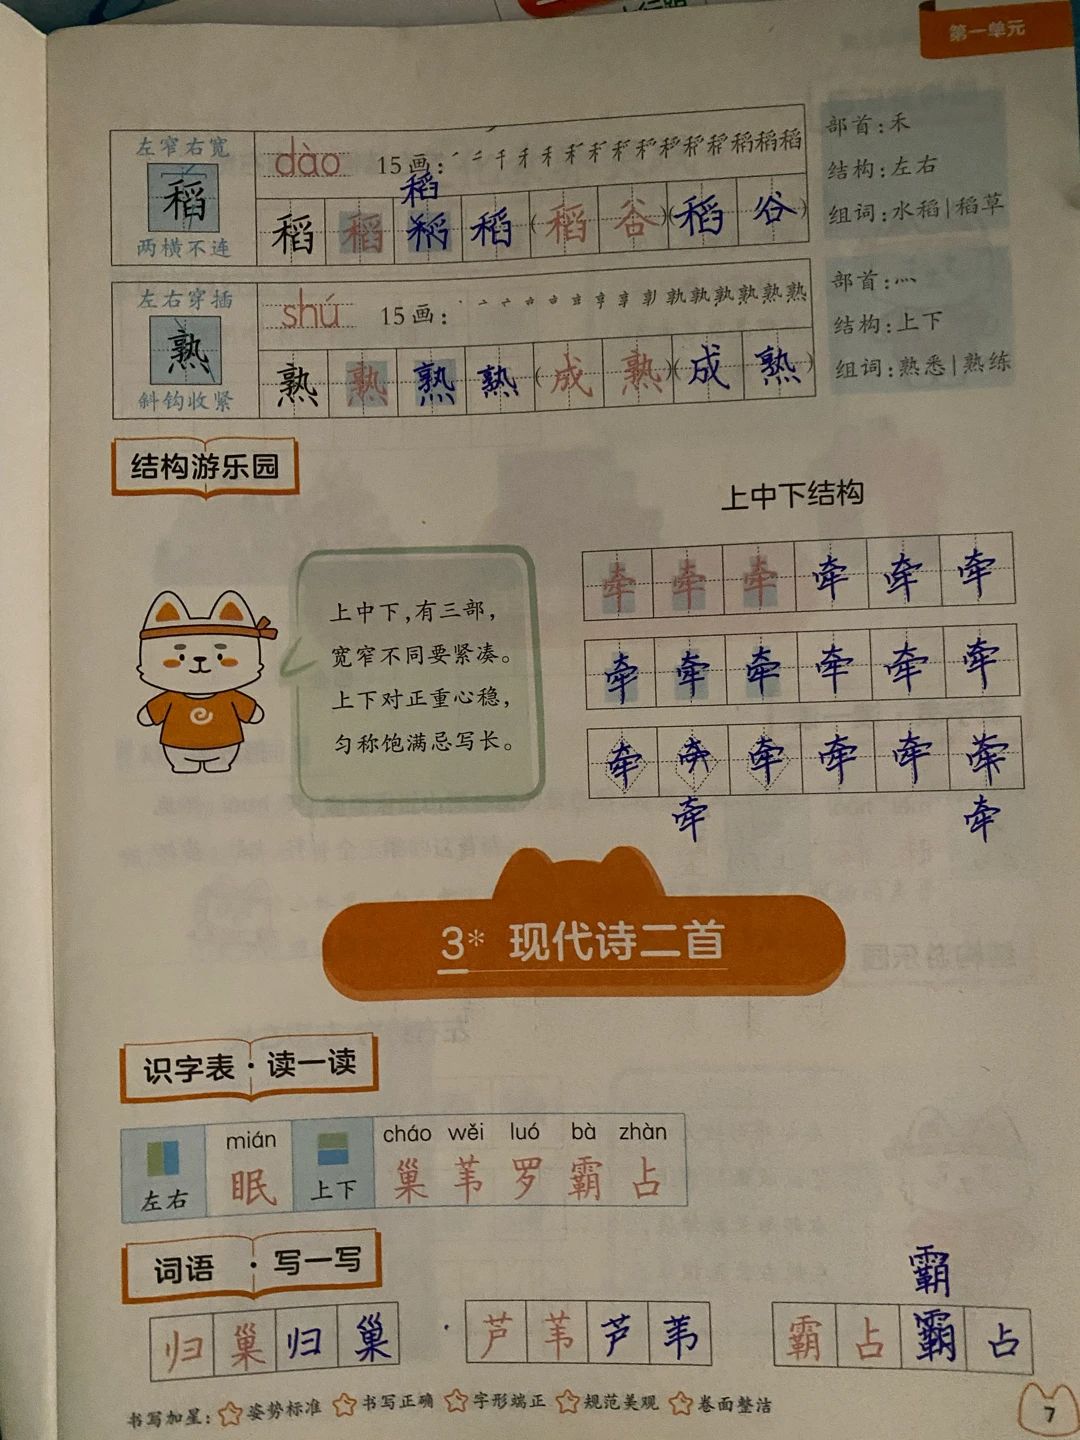 第一单元
左窄右宽
稻
两横不连
dào 15画:
稻
稻 稻 稻 稻 (稻 谷)(稻 谷)
部首:禾
结构:左右
组词:水稻|稻草
左右穿插
熟
斜钩收紧
shú 15画:
熟 熟 熟 熟 (成 熟)(成 熟)
部首:灬
结构:上下
组词:熟悉|熟练
结构游乐园
上中下结构
上中下,有三部,
宽窄不同要紧凑。
上下对正重心稳,
匀称饱满忌写长。
牵 牵 牵 牵 牵 牵
牵 牵 牵 牵 牵 牵
牵 牵 牵 牵 牵 牵
牵 牵
3* 现代诗二首
识字表·读一读
mián cháo wěi luó bà zhàn
左右 眠 上下 巢 苇 罗 霸 占
词语·写一写
霸
归 巢 归 巢 芦 苇 芦 苇 霸 占 霸 占
书写加星: 姿势标准 书写正确 字形端正 规范美观 卷面整洁
7